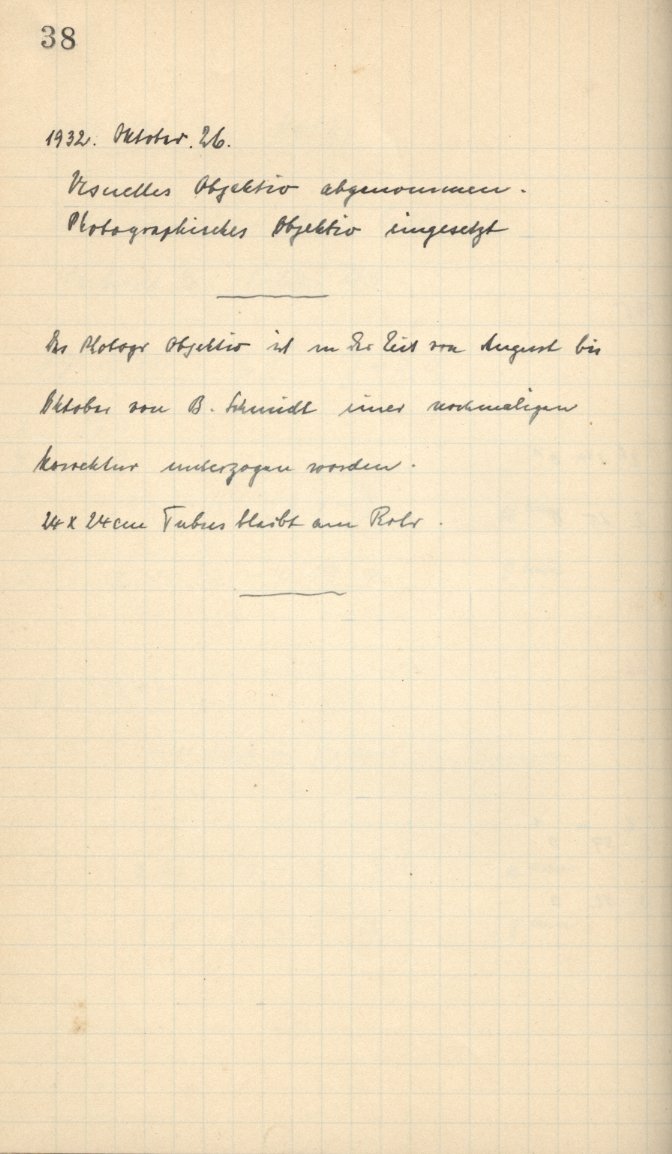 38
1932. Oktober. 26.
Visuelles Objektiv abgenommen.
Photographisches Objektiv eingesetzt
Das Photogr Objektiv ist in der Zeit von August bis
Oktober von B. Schmidt einer nochmaligen
Korrektur unterzogen worden.
24 x 24 cm Tubus bleibt am Rohr.